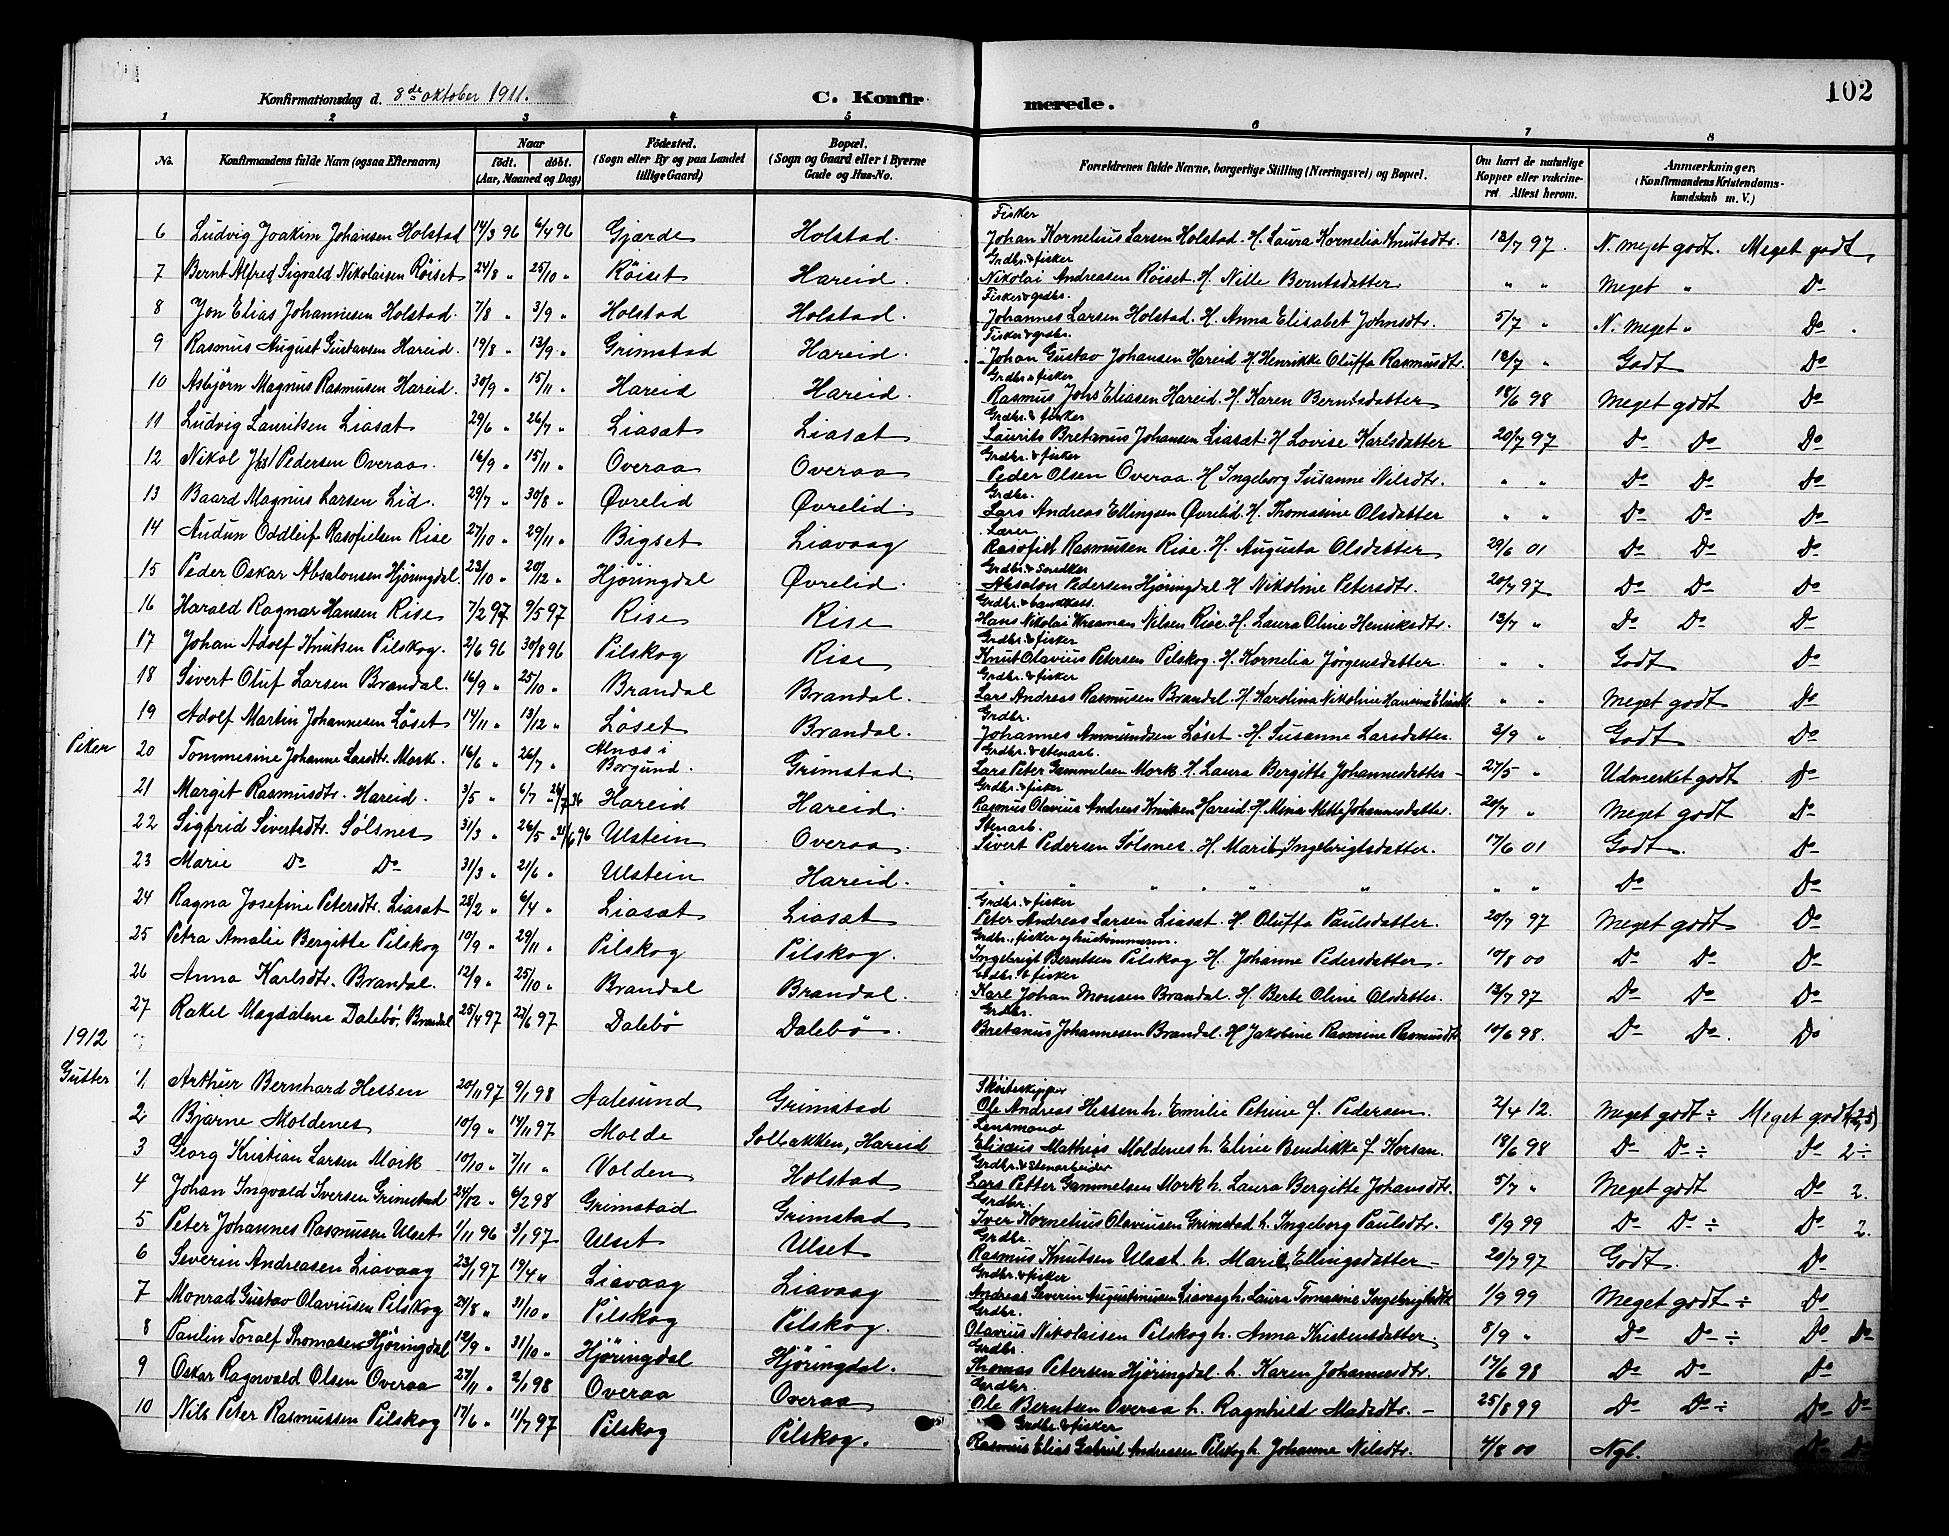 102
Konfirmationsdag d. 8de oktober 1911.
C. Konfirmerede.
1 2 3 4 5 6 7 8
No.
Konfirmandens fulde Navn (ogsaa Efternavn)
Naar
født. døbt.
(Aar, Maaned og Dag)
Fødested.
(Sogn eller By og paa Landet
tillige Gaard)
Bopæl.
(Sogn og Gaard eller i Byerne
Gade og Hus-No.
Forældrenes fulde Navne, borgerlige Stilling (Næringsvei) og Bopæl.
Om havt de naturlige
Kopper eller vaccine-
ret Attest herom.
Anmærkninger,
(Konfirmandens Kristendoms-
kundskab m. V.)
Fisker
6 Ludvig Joakim Johansen Holstad 14/3 96 6/4 96 Gjærde Holstad. Johan Kornelius Larsen Holstad. H. Laura Kornelia Knutsdtr. 13/7 97. N. meget godt. Meget godt.
Grdbr. & fisker
7 Bernt Alfred Sigvald Nikolaisen Röiset 24/8 " 25/10 " Röiset Hareid. Nikolai Andreasen Röiset. H. Nille Berntsdatter " " Meget " Do
Fisker & grdbr.
8 Jon Elias Johannesen Holstad. 7/8 " 3/9 " Holstad Holstad. Johannes Larsen Holstad. H. Anna Elisabet Johnsdtr. 5/7 " N. meget " Do
Fisker & grdbr.
9 Rasmus August Gustavsen Hareid. 19/8 " 13/9 " Grimstad Hareid. Johan Gustav Johansen Hareid H. Henrikke Oluffa Rasmusdtr. 13/7 " Godt Do
Grdbr. & fisker
10 Asbjörn Magnus Rasmusen Hareid. 30/9 " 15/11 " Hareid Hareid. Rasmus Johs Eliasen Hareid. H. Karen Berntsdatter 18/6 98 Meget godt Do
Grdbr. & fisker
11 Ludvig Lauritsen Liasæt 29/6 " 26/7 " Liasæt Liasæt Laurits Bretanus Johansen Liasæt. H Lovise Karlsdatter 20/7 97 Do Do Do
Grdbr. & fisker
12 Nikol Jhs/ Pedersen Overaa. 16/9 " 15/11 " Overaa Overaa Peder Olsen Overaa. H Ingeborg Susanne Nilsdtr. " " Do Do Do
Grdbr.
13 Baard Magnus Larsen Lid. 29/7 " 30/8 " Øvrelid Øvrelid. Lars Andreas Ellingsen Øvrelid. H. Thomasine Olsdatter " " Do Do Do
Lærer
14 Audun Oddleif Rasofielsen Rise 27/10 " 29/11 " Bigset Liavaag Rasofiel Rasmusen Rise. H. Augusta Olsdatter 29/6 01 Do Do Do
Grdbr. & Snedker
15 Peder Oskar Absalonsen Hjöringdal. 23/10 " 20/12 " Hjöringdal Øvrelid. Absalon Pedersen Hjöringdal H Nikoline Petersdtr. 20/7 97 Do Do Do
Grdbr. & bankkass.
16 Harald Ragnar Hansen Rise 7/2 97 9/5 97 Rise Rise Hans Nikolai Nilsen Rise. H. Laura Oline Henriksdtr. 13/7 " Do Do Do
Grdbr. & fisker
17 Johan Adolf Knutsen Pilskog. 2/6 96 30/8 96 Pilskog Rise Knut Olavius Petersen Pilskog. H. Kornelia Jörgensdatter. " " Godt Do
Grdbr. & fisker
18 Sivert Oluf Larsen Brandal. 16/9 " 25/10 " Brandal Brandal. Lars Andreas Rasmusen Brandal. H. Karolina Nikoline Hansine " " Meget godt Do
Grdbr.
19 Adolf Martin Johannesen Löset 14/11 " 13/12 " Löset Brandal. Johannes Ammundsen Löset. H. Susanne Larsdatter. 3/9 " Godt Do
Piker
Grdbr. & stenarb.
20 Tommesine Johanne Larsdtr. Mork. 16/6 " 26/7 " Alnæs i Borgund. Grimstad. Lars Peter Gammelsen Mork H. Laura Bergitte Johannesdatter 27/5 " Udmerket godt Do
Grdbr. & fisker
21 Margit Rasmusdtr. Hareid. 3/5 " 6/7 " 26/7 96 Hareid Hareid. Rasmus Olavius Andreas Knutsen Hareid. H. Mina Mette Johannesdatter. 20/7 " Meget godt Do
Stenarb.
22 Sigfrid Sivertsdtr. Sölsnes 31/3 " 26/5 " 21/6 96 Ulstein Overaa. Sivert Pedersen Sölsnes. H. Marie Ingebrigtsdatter. 17/6 01 Godt. Do
23 Marie Do Do 31/3 " 21/6 " Ulstein Hareid. " " " " " " " " Do Do
Grdbr. & fisker
24 Ragna Josefine Petersdtr. Liasæt 28/2 " 6/4 " Liasæt Liasæt Peter Andreas Larsen Liasæt. H Oluffa Paulsdatter. 20/7 97 Meget godt Do
Grdbr., fisker og hustömmerm.
25 Petra Amalie Bergitte Pilskog 10/9 " 29/11 " Pilskog Pilskog. Ingebrigt Berntsen Pilskog H. Johanne Pedersdatter. 10/8 00 Do Do Do
Grdbr. & fisker
26 Anna Karlsdtr. Brandal. 12/9 " 25/10 " Brandal Brandal. Karl Johan Monsen Brandal. H. Berte Oline Olsdatter. 13/7 97 Do Do Do
Grdbr.
27 Rakel Magdalene Dalebö, Brandal 25/4 97 27/6 97 Dalebö Dalebö. Bretanus Johannesen Brandal. H Jakobine Rasmine Rasmusdtr. 10/6 98. Do Do. Do
1912
Gutter
Skøiteskipper
1 Arthur Bernhard Hessen 20/11 97 9/1 98 Aalesund Grimstad Ole Andreas Hessen h. Emilie Petrine f. Pedersen. 2/4 12. Meget godt ÷ Meget godt (2,5)
Lensmand
2 Bjarne Moldenes 10/9 " 14/11 97 Molde Solbakken, Hareid Elisæus Mathias Moldenes h. Eline Bendikke f. Korsan. 18/6 98 Do Do ÷ Do 2 ÷
Grdbr. & Stenarbeider
3 Georg Kristian Larsen Mork 10/10 " 7/11 " Volden Holstad Lars Petter Gammelsen Mork h. Laura Bergitte Johansdtr. 5/7 " Meget godt Do 2.
Grdbr.
4 Johan Ingvald Iversen Grimstad 24/12 " 6/2 98 Grimstad Grimstad Iver Kornelius Olaviusen Grimstad h. Ingeborg Paulsdtr. 8/9 99 Do Do ÷ Do 2.
Grdbr.
5 Peter Johannes Rasmusen Ulset 1/11 96 3/1 97 Ulset Ulset Rasmus Knutsen Ulset h. Marie Ellingsdatter 20/7 97 Godt. Do
Grdbr. & fisker
6 Severin Andreasen Liavaag 23/1 97 19/4 " Liavaag Liavaag Andreas Severin Augustinusen Liavaag h. Laura Tomasine Ingebrigtsdtr 1/9 99 Meget godt ÷ Do
Grdbr.
7 Monrad Gustav Olaviusen Pilskog 24/8 " 31/10 " Pilskog Pilskog. Olavius Nikolaisen Pilskog h. Anna Kristensdatter. 8/9 " Do Do ÷ Do Do
Grdbr.
8 Paulin Toralf Thomasen Hjöringdal 12/9 " 31/10 " Hjöringdal Hjöringdal. Thomas Petersen Hjöringdal h. Karen Johannesdtr. 17/6 98 Do Do Do
Grdbr.
9 Oskar Ragnvald Olsen Overaa 27/11 " 2/1 98 Overaa Overaa Ole Berntsen Overaa h. Ragnhild Madsdtr. 25/8 99 Do Do ÷ Do Do
Grdbr. & fisker
10 Nils Peter Rasmussen Pilskog 17/6 " 11/7 97 Pilskog Pilskog. Rasmus Elias Gabriel Andreasen Pilskog h. Johanne Nilsdtr. 4/8 00 Ngl. Do Do